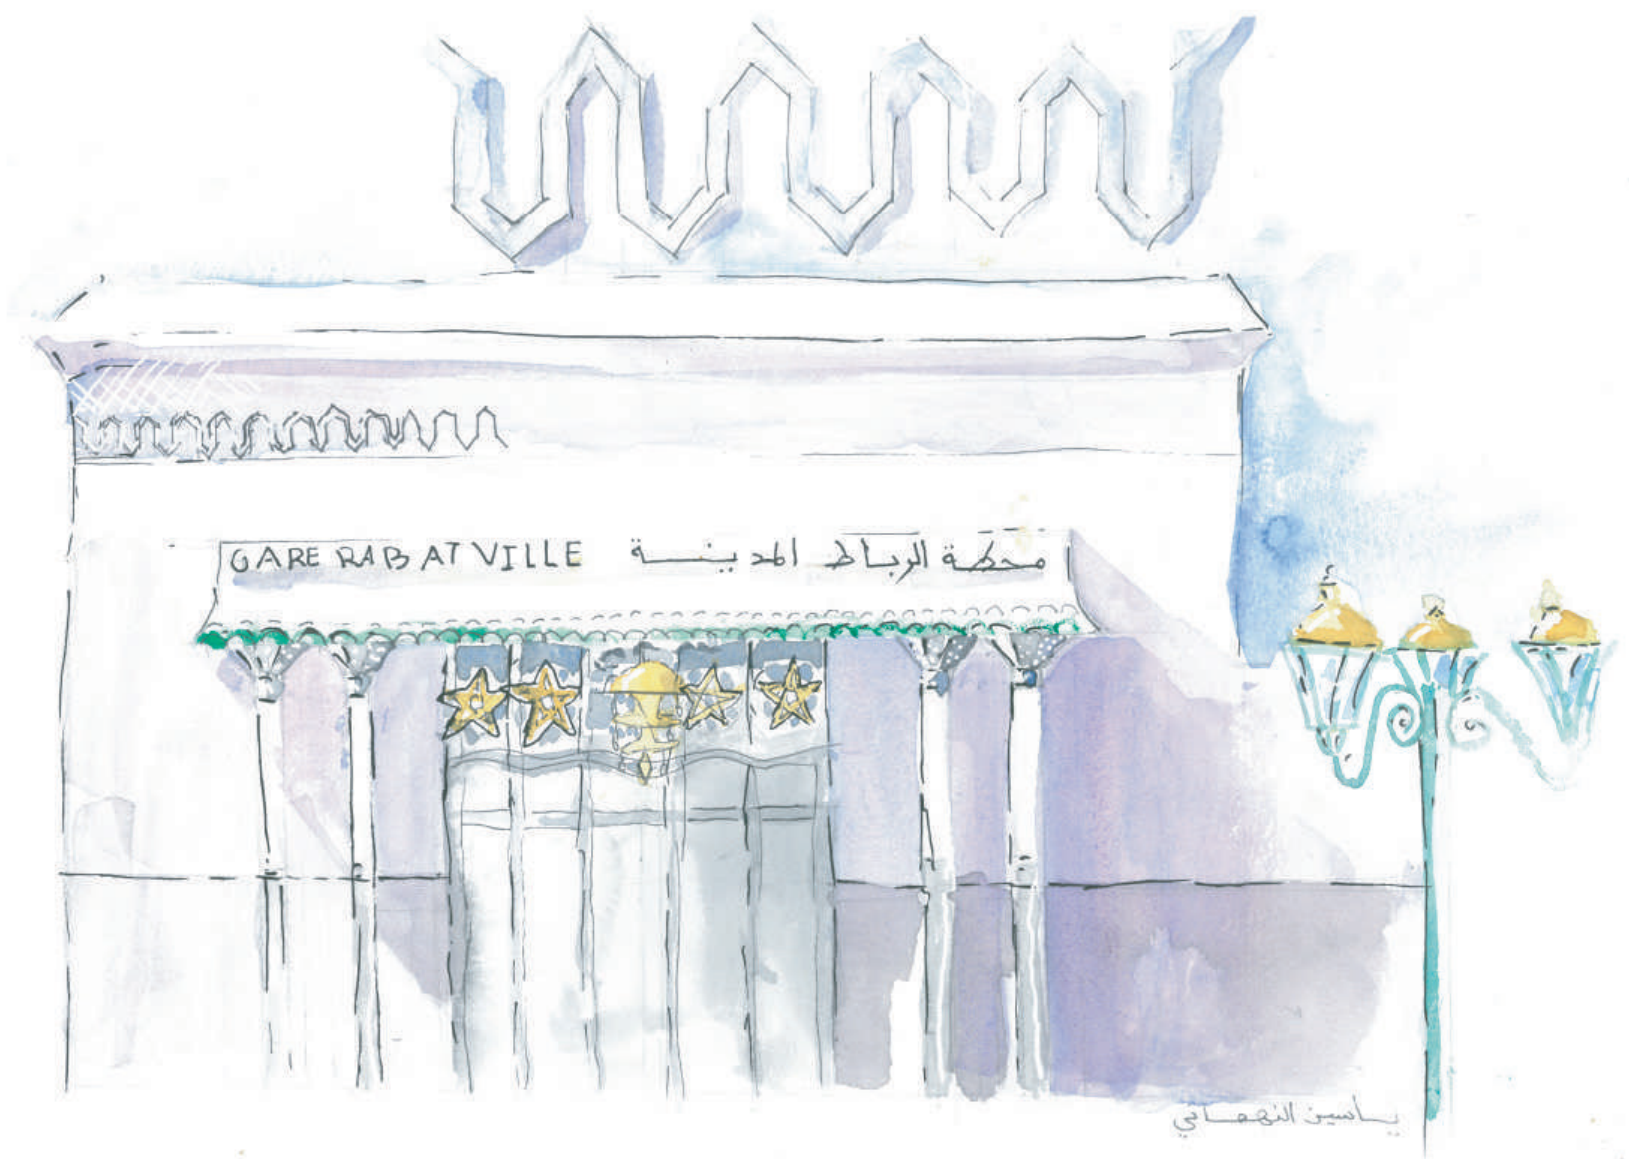 GARE RABAT VILLE محطة الرباط المدينة
ياسين